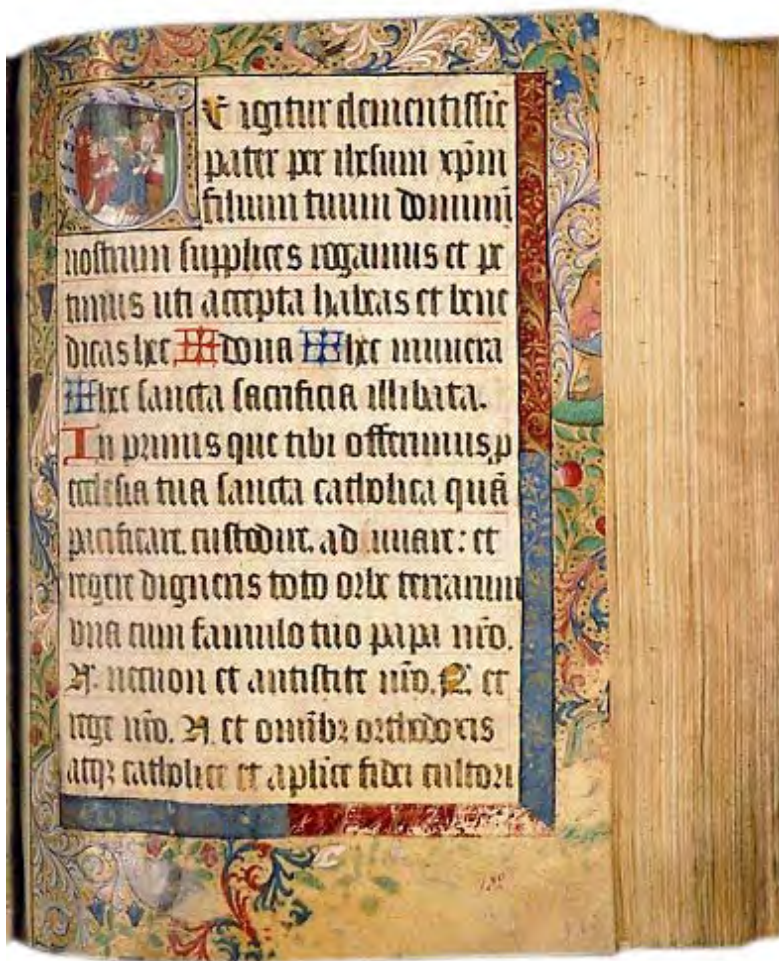 TE igitur clementissīe
pater per ihesum xp̄m
filium tuum dominū
nostrum supplices rogamus et pe
timus uti accepta habeas et bene
dicas hec ✠ dona ✠ hec munera
✠ hec sancta sacrificia illibata.
In primis que tibi offerimus p
ecclesia tua sancta catholica quā
pacificare. custodire. ad unare: et
regere digneris toto orbe terrarum
una cum famulo tuo papa nr̄o.
N. necnon et antistite nr̄o. N. et
rege nr̄o. N. et omībꝫ orthodoxis
atqꝫ catholice et aplice fidei cultori